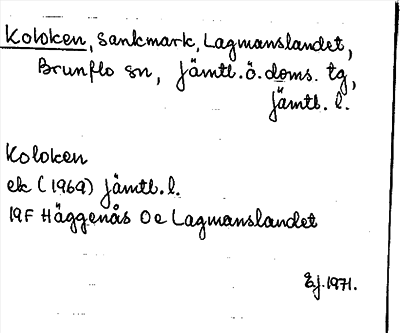 Koloken, sankmark, Lagmanslandet,
Brunflo sn, Jämtl. ö. doms. tg,
Jämtl. l.
Koloken
ek (1969) Jämtl. l.
19F Häggenås Oe Lagmanslandet
Ej. 1971.